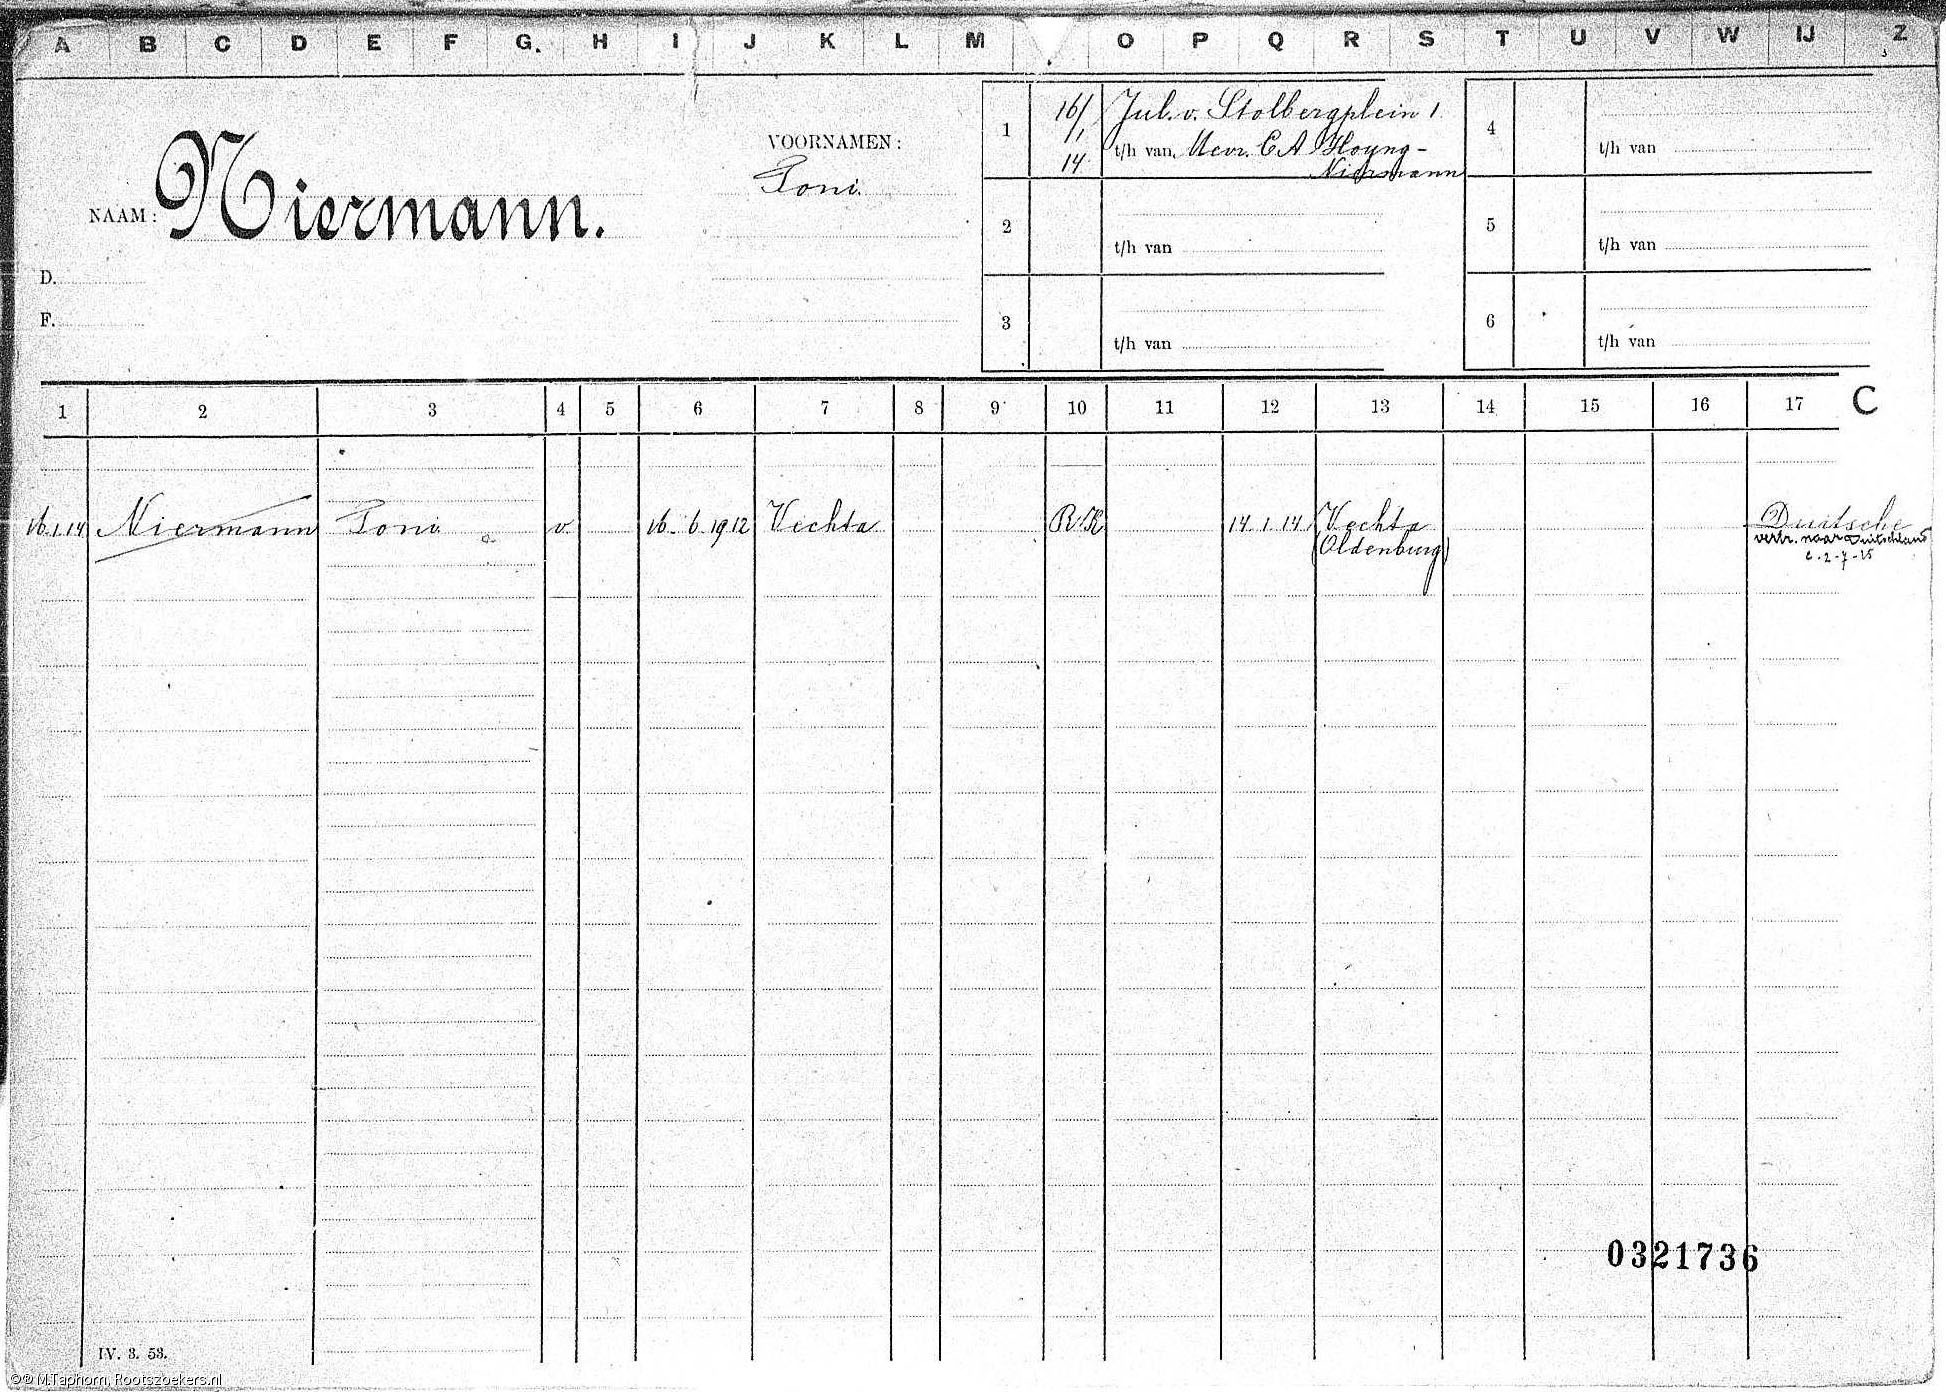 A B C D E F G. H I J K L M O P Q R S T U V W IJ Z
NAAM: Niermann.
VOORNAMEN:
Toni.
D.
F.
1 16/1 14 Jul. v. Stolbergplein 1.
t/h van Mevr. C A Hoyng-
Niermann
2 t/h van
3 t/h van
4 t/h van
5 t/h van
6 t/h van
1 2 3 4 5 6 7 8 9 10 11 12 13 14 15 16 17 C
16.1.14 Niermann Toni v. 16.6.1912 Vechta R.K 14.1.14 Vechta Duitsche
(Oldenburg) vertr. naar Duitschland
2-7-15
0321736
IV. 3. 53.
©® M.Taphorn, Rootszoekers.nl